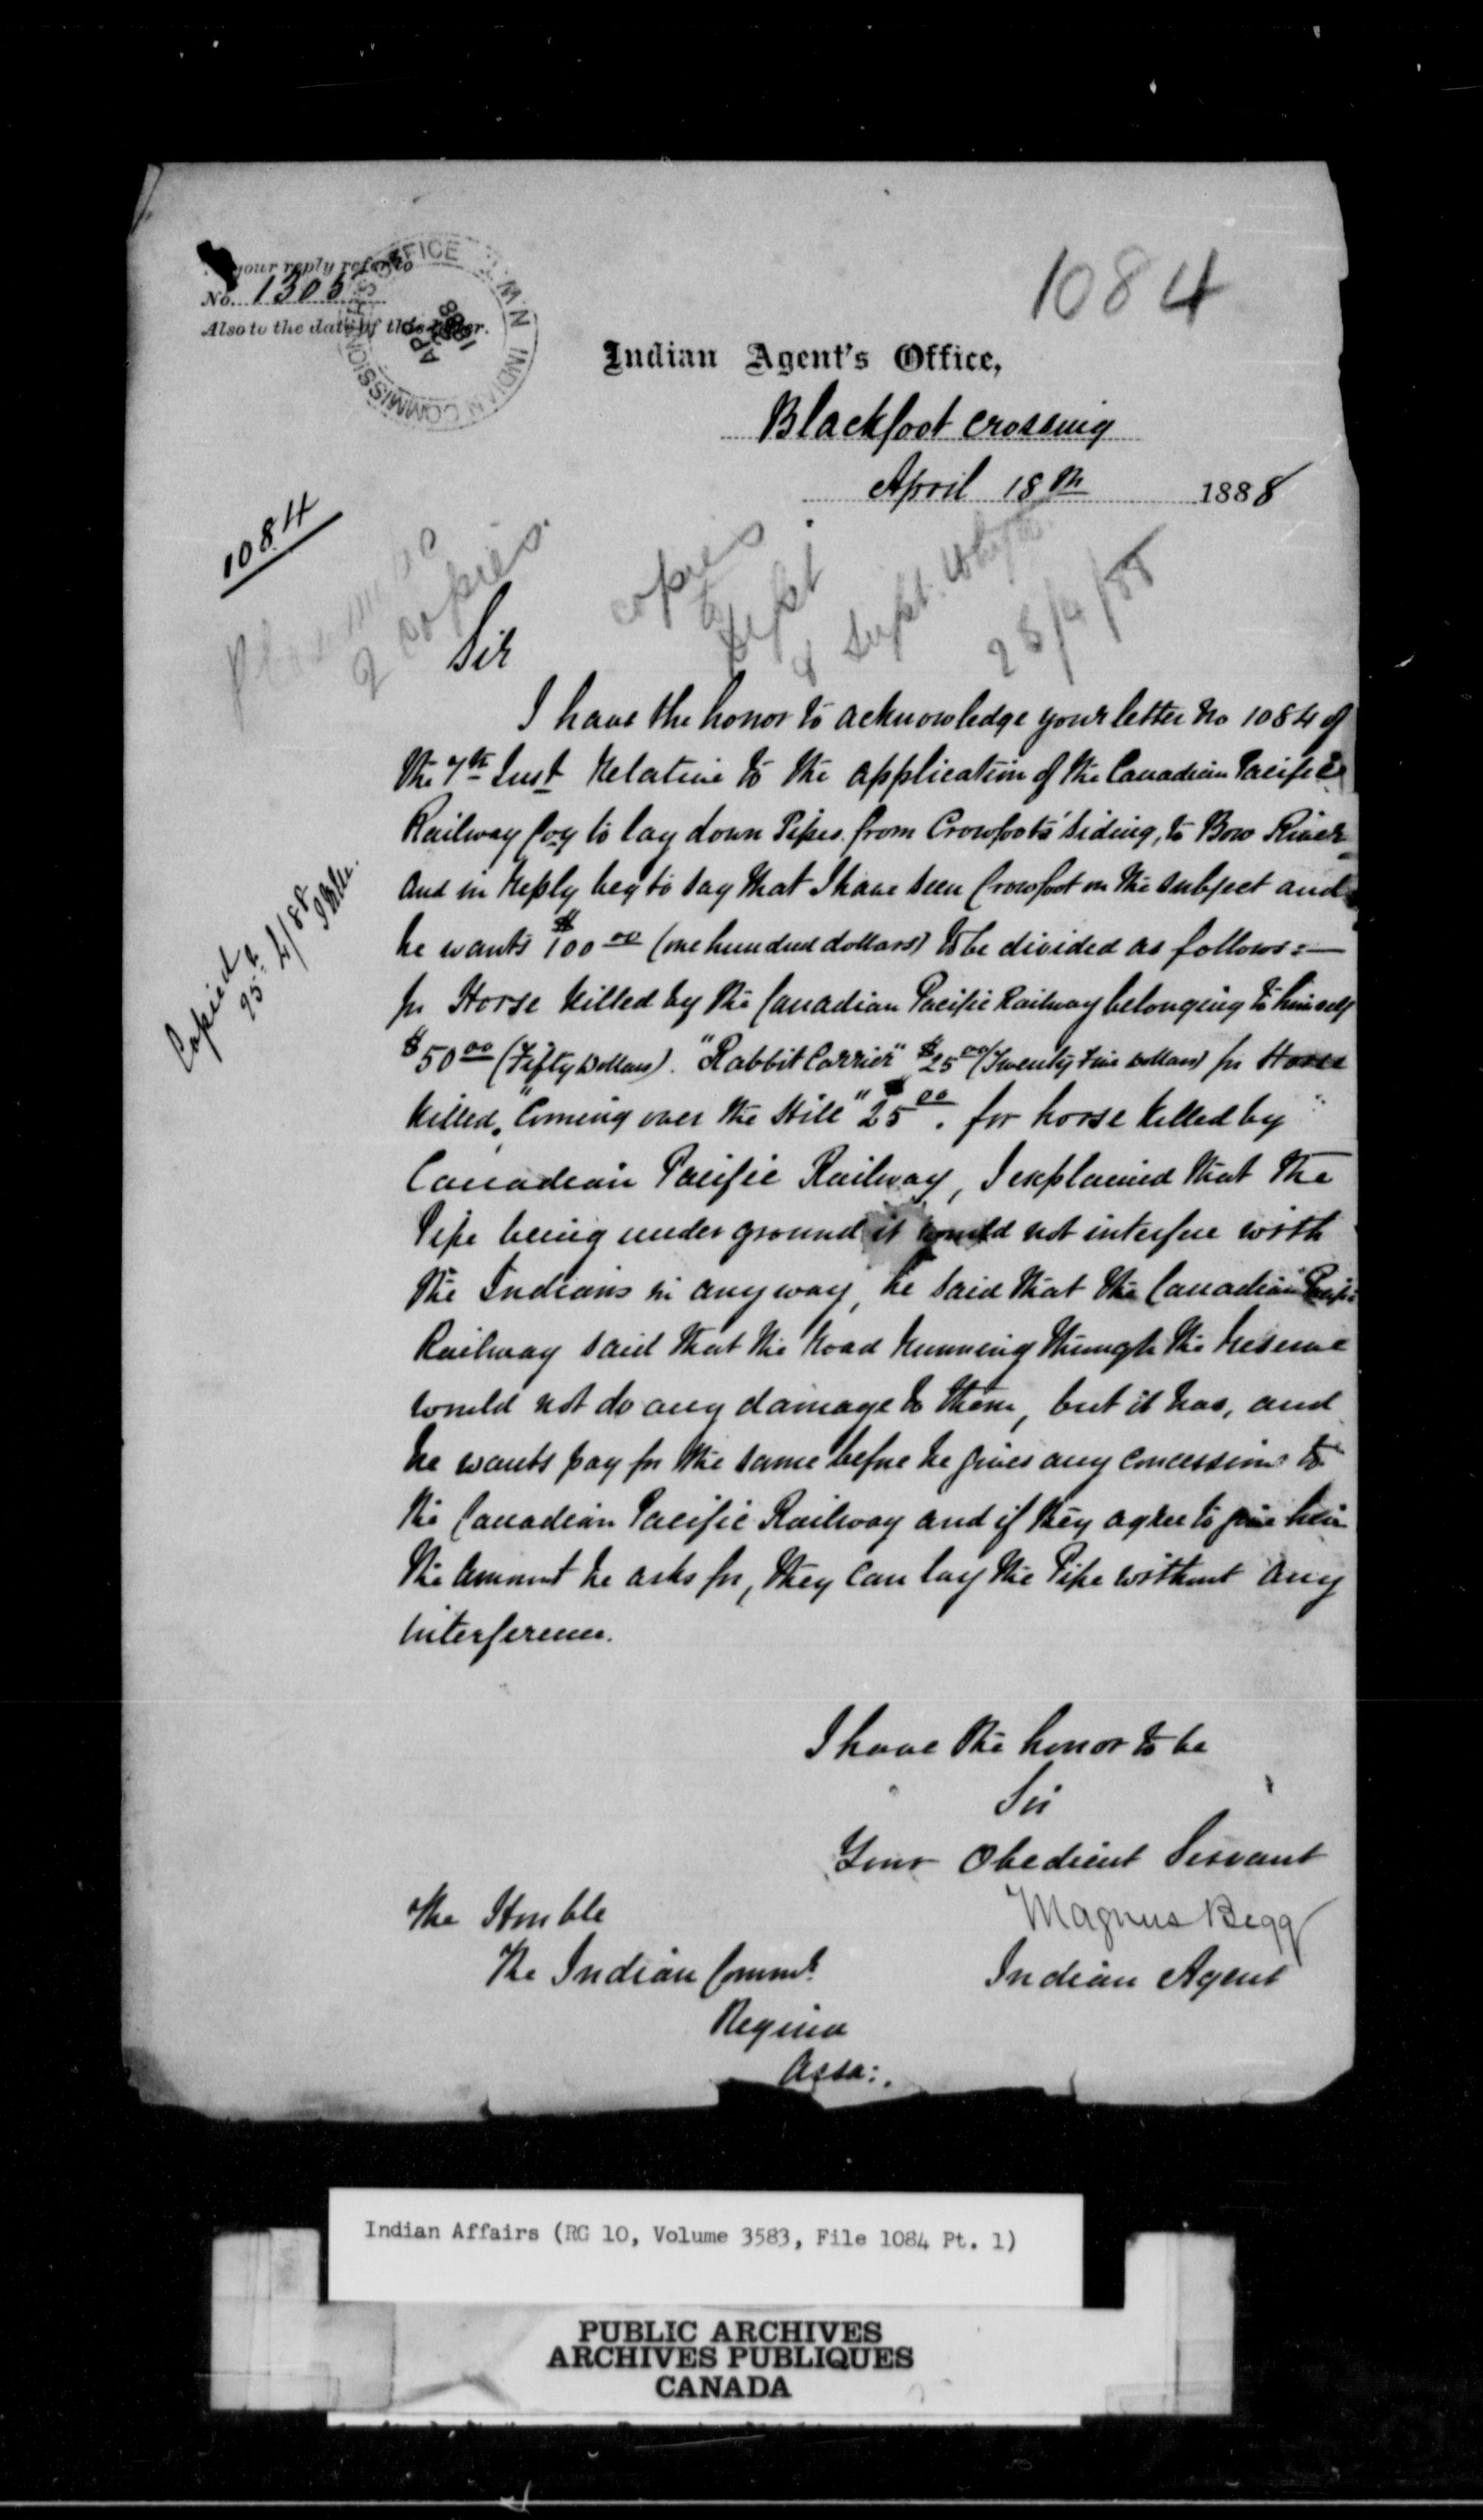 your reply refer to
No. 1305
Also to the date of this letter.
COMMISSIONER'S OFFICE
INDIAN
N.W.T.
APR
1888
1084
Indian Agent's Office,
Blackfoot Crossing
April 18th 1888
1084
2 copies.
copies
to
Dept
& Supt. Whyte
28/4/88
Sir
I have the honor to acknowledge your letter No 1084 of
the 7th Inst Relative to the application of the Canadian Pacific
Railway Coy to lay down Pipes from Crowfoots' Siding, to Bow River
and in Reply beg to say that I have seen Crowfoot on the subject and
he wants $100 00 (one hundred dollars) to be divided as follows:—
for Horse killed by the Canadian Pacific Railway belonging to himself
$50 00 (Fifty Dollars). "Rabbit Carrier" $25 00 (Twenty Five Dollars) for Horse
killed, "Coming over the Hill" $25 00. for horse killed by
Canadian Pacific Railway, I explained that the
Pipe being under ground it would not interfere with
the Indians in anyway, he said that the Canadian Pacific
Railway said that the Road running through the Reserve
would not do any damage to them, but it has, and
he wants pay for the same before he gives any concessions to
the Canadian Pacific Railway and if they agree to give him
the amount he asks for, they can lay the Pipe without any
interference.
Copied
25. 4/88
I have the honor to be
Sir
Your Obedient Servant
Magnus Begg
Indian Agent
The Honble
The Indian Commr.
Regina
Assa:.
Indian Affairs (RG 10, Volume 3583, File 1084 Pt. 1)
PUBLIC ARCHIVES
ARCHIVES PUBLIQUES
CANADA